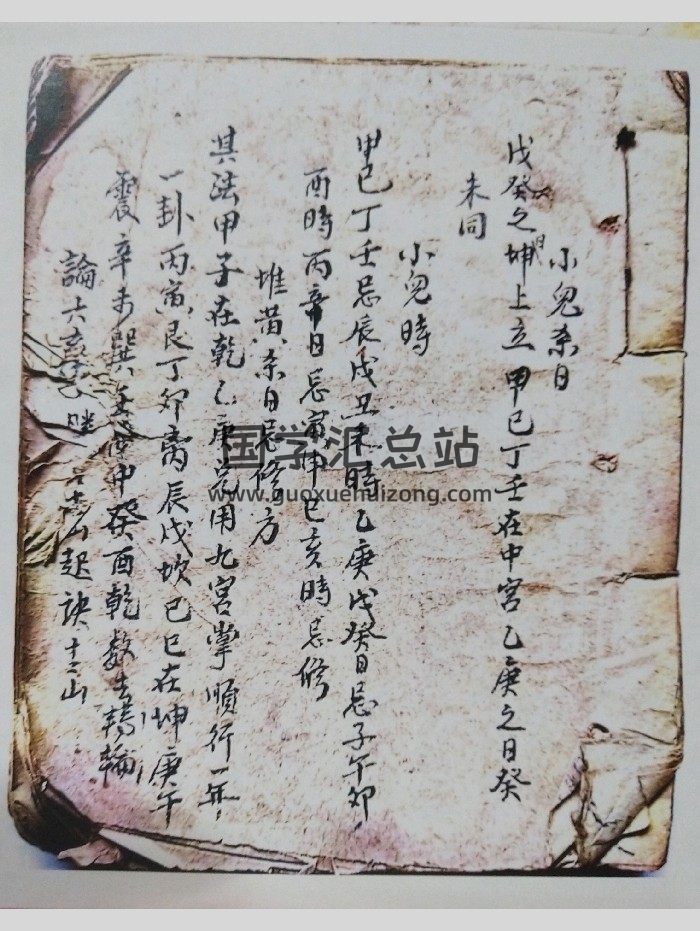 小兒杀日
戊癸之日坤上立甲已丁壬在中宮乙庚之日癸
未同
小兒時
甲已丁壬忌辰戌丑未時乙庚戊癸日忌子午卯
酉時丙辛日忌寅申巳亥時忌修
堆黄杀日忌修方
其法甲子在乾乙庚兑用九宮掌順行一年
一卦丙寅艮丁卯离辰戊坎已巳在坤庚午
震辛未巽壬申癸酉乾数去轉輪
論六起訣十二山
国学汇总站
www.guoxuehuizong.com